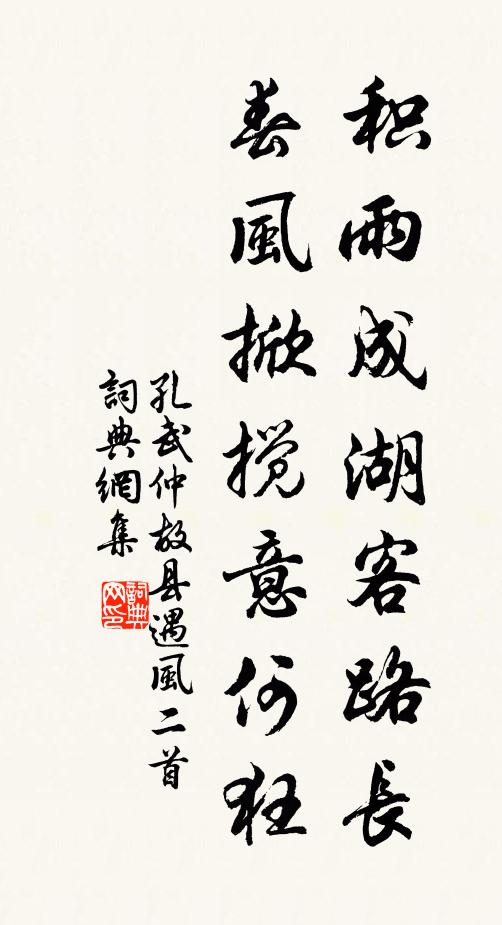 积雨成湖客路長
春風掀揽意何狂
孔武仲故县遇風二首
詞典網集
詞典网印